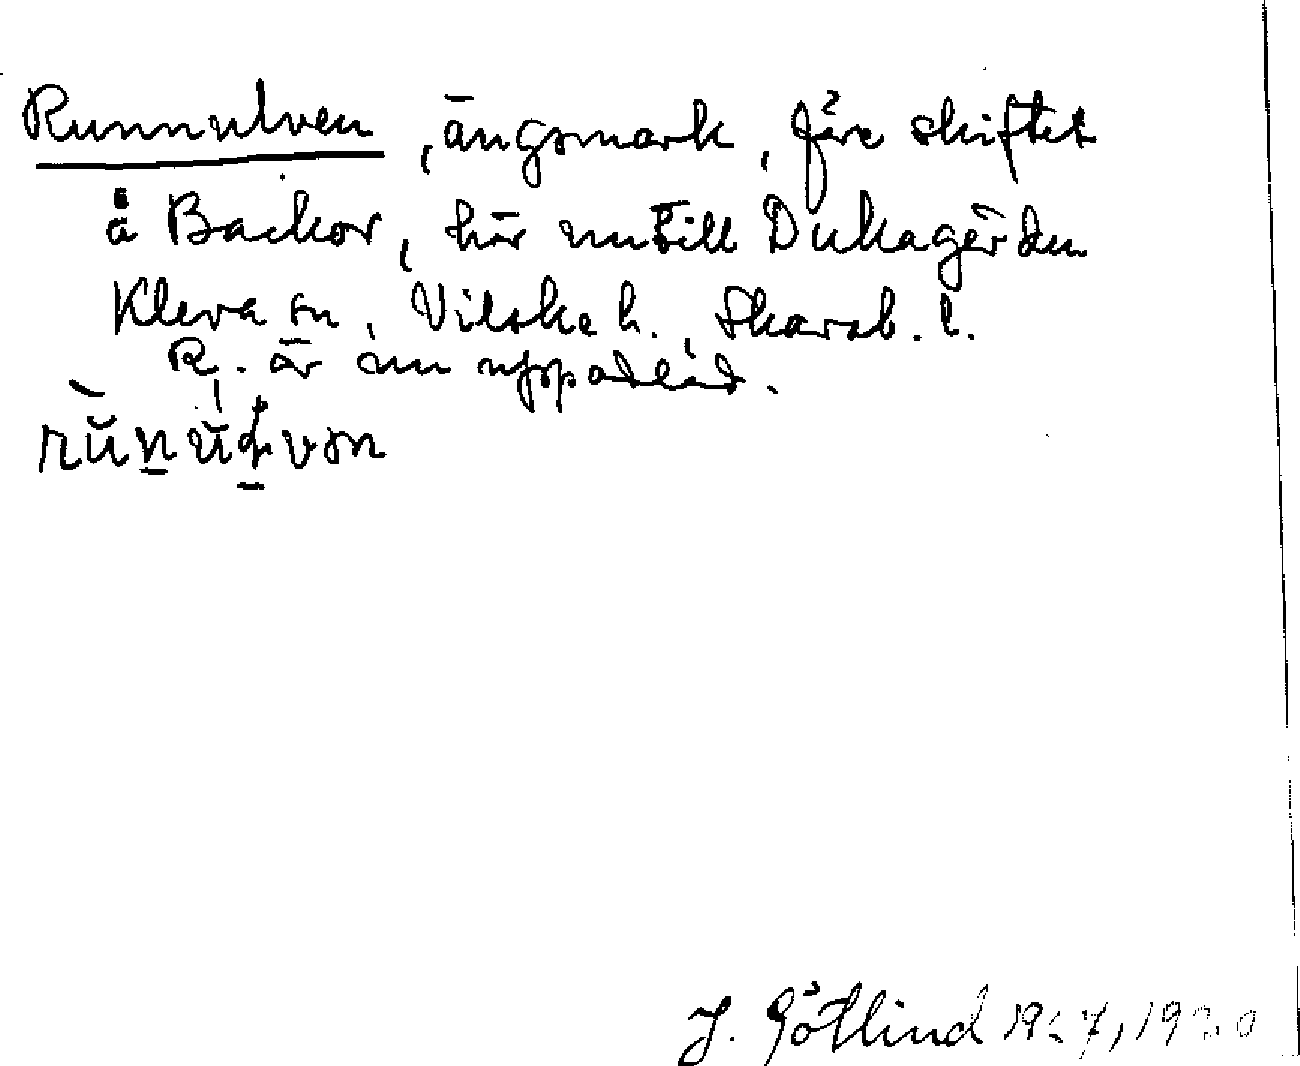 Runnulven, ängsmark, före skiftet
å Backor, hör nu till Dukagärden
Kleva sn, Vilske h., Skarab. l.
R. är nu uppodlad.
J. Götlind 1927, 1930